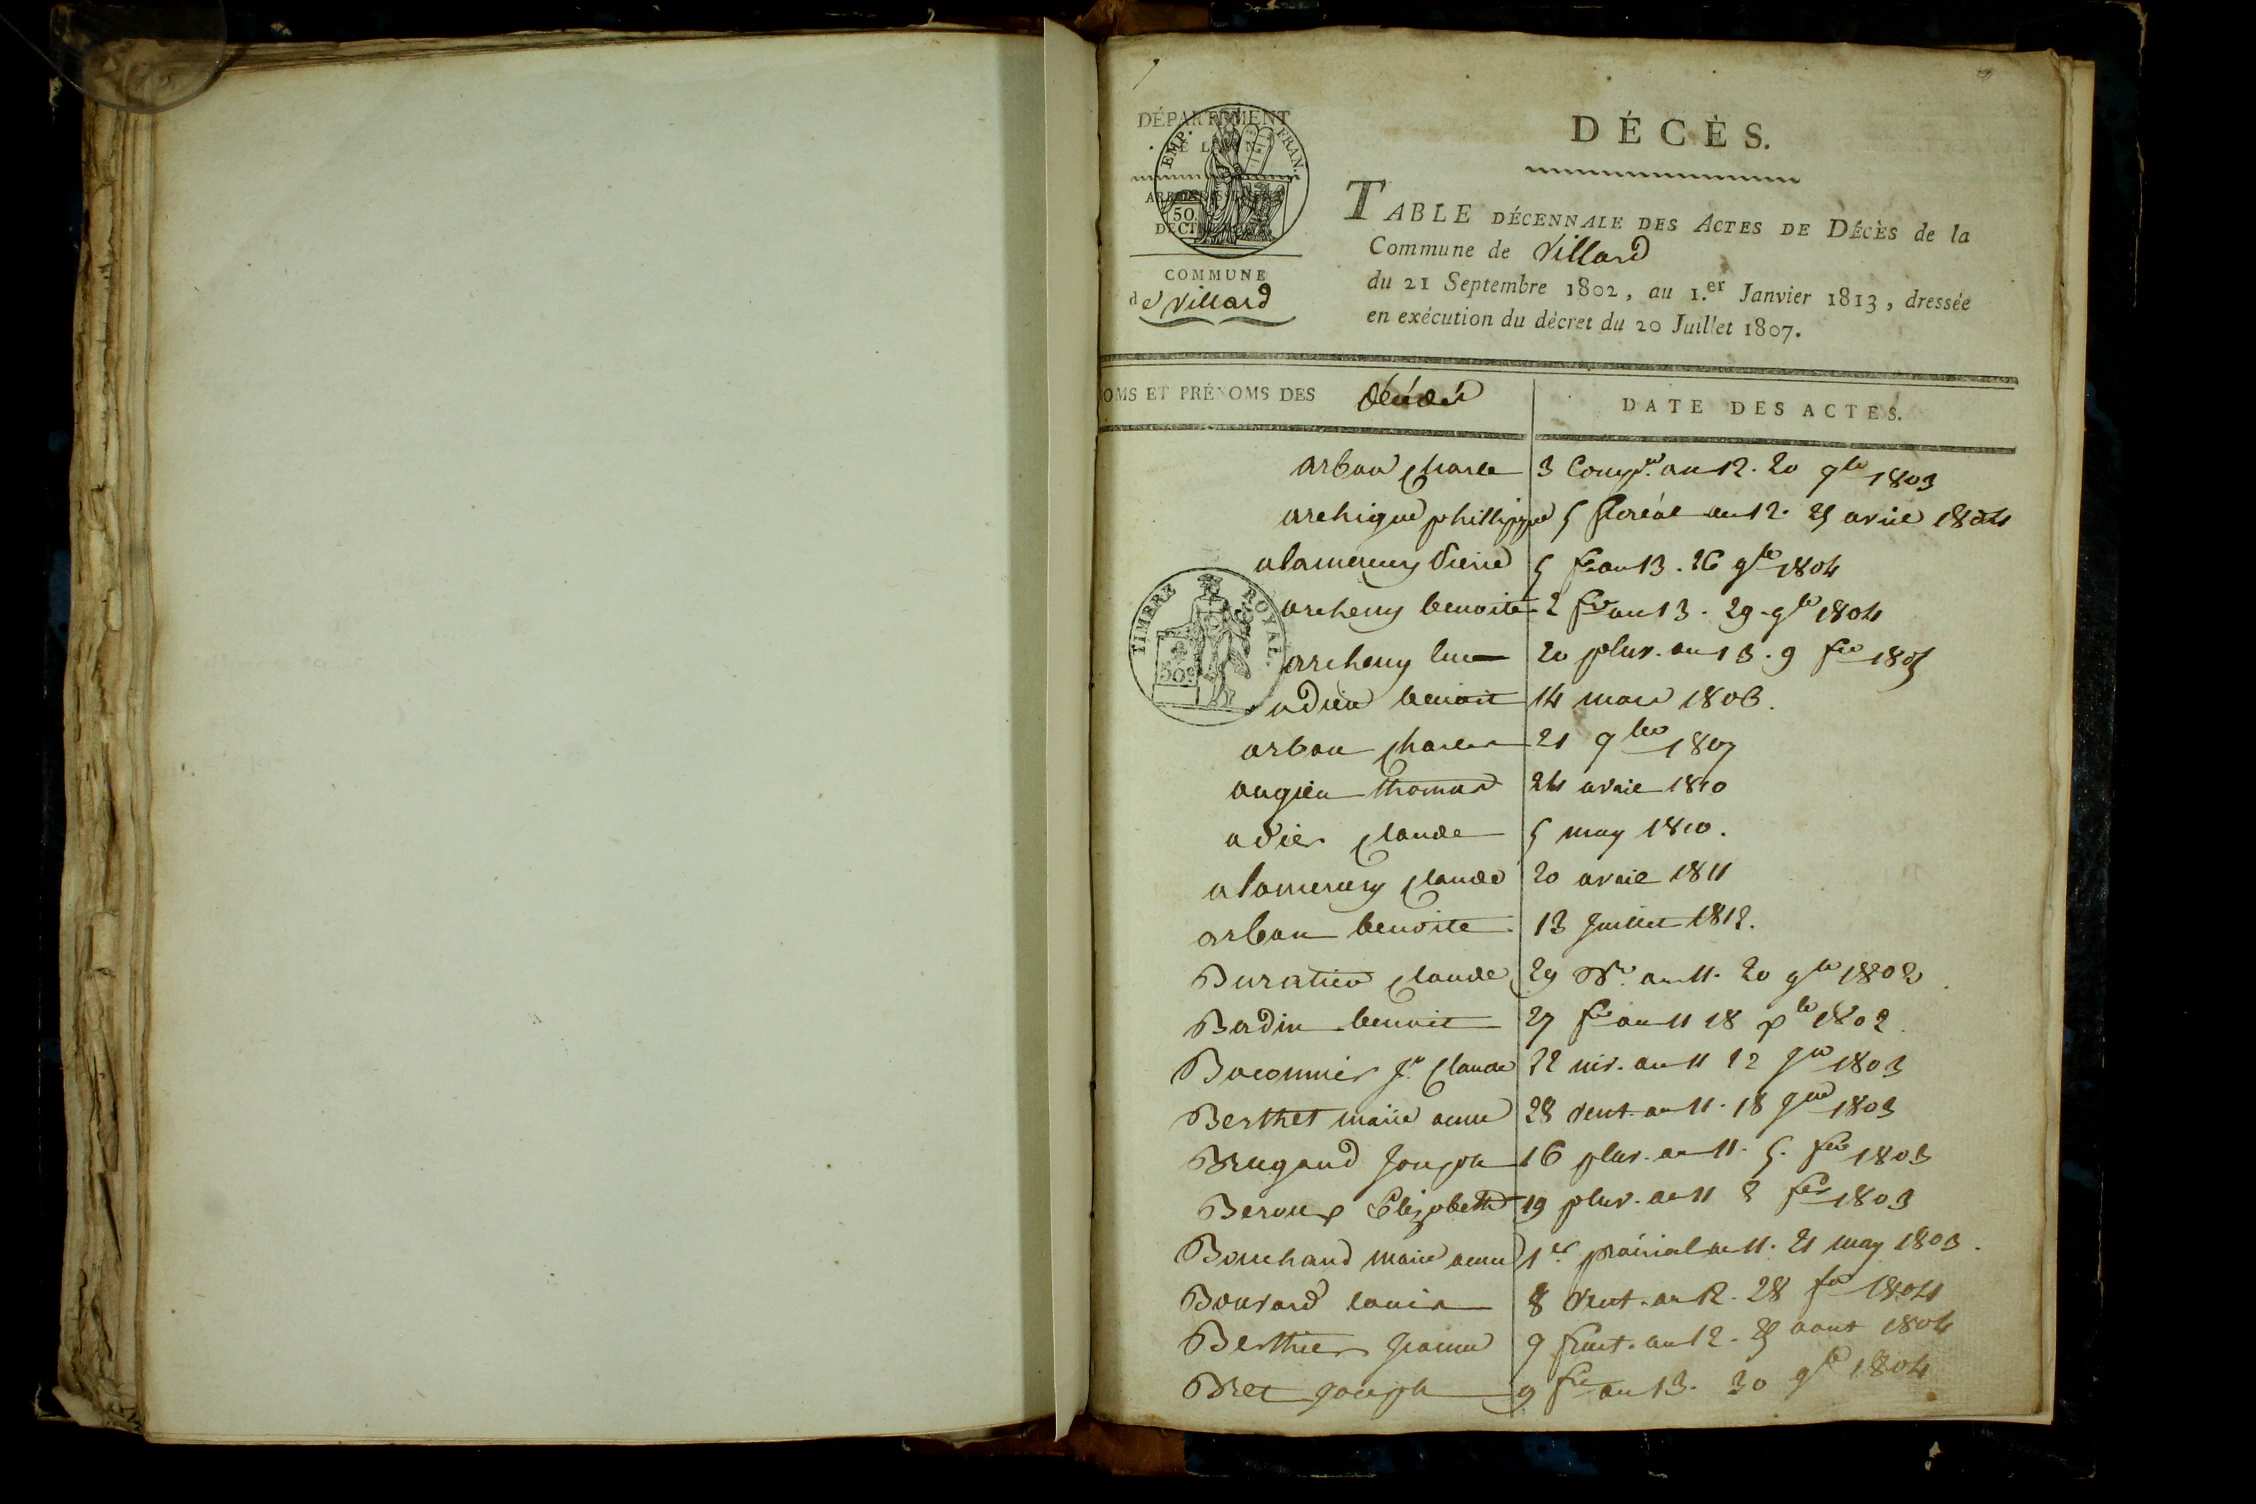 DÉPARTEMENT
DE L'AIN.
EMP. FRAN.
50
COMMUNE
de Villard
DÉCÈS.
TABLE DÉCENNALE DES ACTES DE DÉCÈS de la
Commune de Villard
du 21 Septembre 1802, au 1.er Janvier 1813, dressée
en exécution du décret du 20 Juillet 1807.
OMS ET PRÉNOMS DES décédés
DATE DES ACTES.
TIMBRE ROYAL.
arban charle 3 Comp.re an 12. 20 1803
phillippe 5 floréal an 12. 25 avril 1804
alamercery Pierre 5 fre an 13. 26 9bre 1804
archeny benoite 2 fre an 13. 29 9bre 1804
archeny luc 20 pluv. an 13. 9 fer 1805
adrien benoit 14 mars 1806.
arban charles 21 9bre 1807
augieu thomas 24 avril 1810
adier claude 5 may 1810.
alamercery claude 20 avril 1811
arban benoite 13 Juillet 1812.
claude 29 Bre. an 11. 20 9bre 1802
Badin benoit 27 fre an 11 18 Xbre 1802
Baconnier Je. claude 22 niv. an 11 12 Jer 1803
Berthet marie anne 28 vent. an 11. 18 1803
Brugand Joseph 16 pluv. an 11. 5. fer 1803
Beroux Elizabeth 19 pluv. an 11 8 fer 1803
Bouchand marie anne 1er prairial an 11. 21 may 1803.
Bouvard louis 8 vent. an 12. 28 fer 1804
Berthier Jeanne 9 fruct. an 12. 25 aout 1804
Bret Joseph 9 fre an 13. 30 9bre 1804